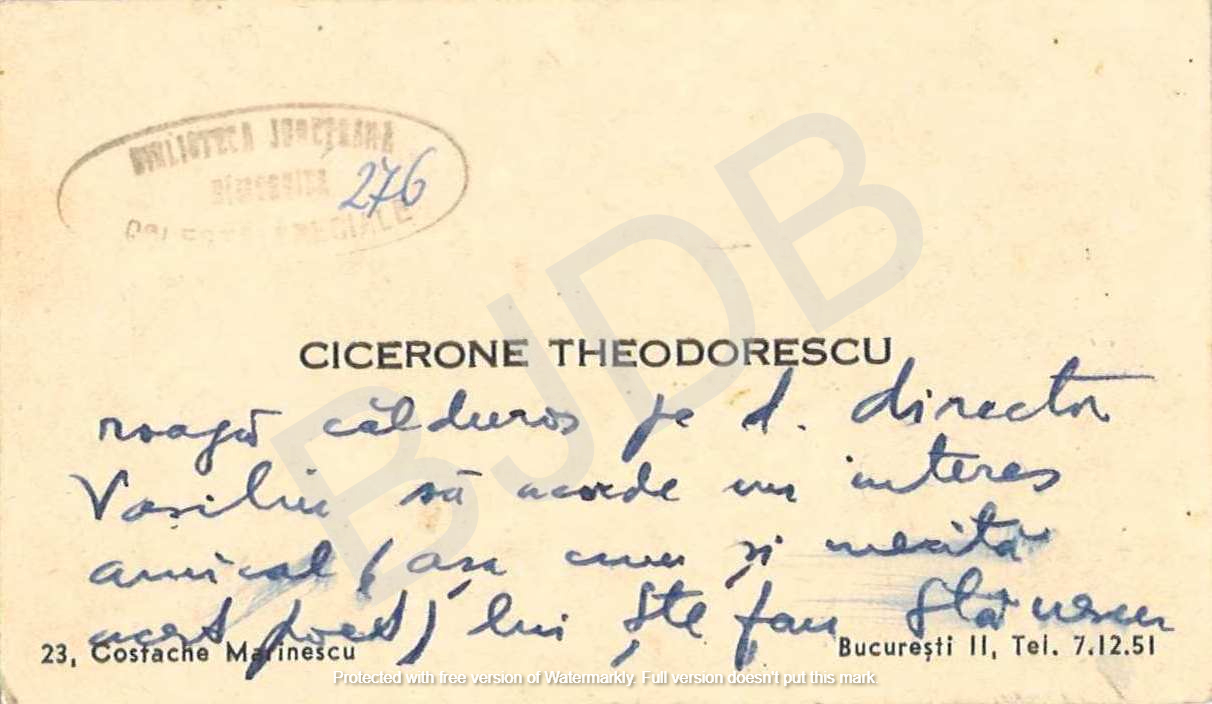 BIBLIOTECA JUDEȚEANĂ
DÎMBOVIȚA
276
COLECȚII SPECIALE
BJDB
CICERONE THEODORESCU
roagă călduros pe d. director
Vasiliu să acorde un interes
amical (așa cum și merită
acest poet) lui Ștefan Stănescu
23, Costache Marinescu
București II, Tel. 7.12.51
Protected with free version of Watermarkly. Full version doesn't put this mark.